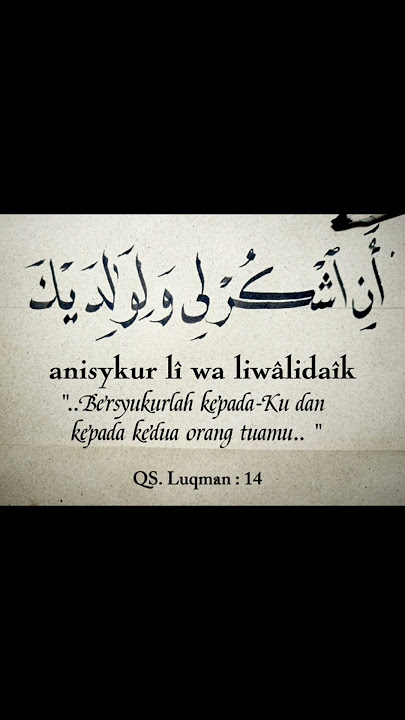 أَنِ ٱشْكُرْ لِي وَلِوَٰلِدَيْكَ
anisykur lî wa liwâlidaîk
"..Bersyukurlah kepada-Ku dan
kepada kedua orang tuamu.. "
QS. Luqman : 14